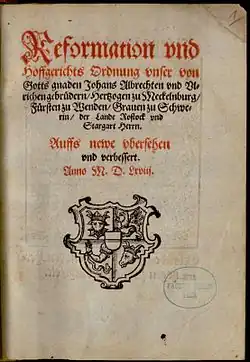 Reformation vnd
Hoffgerichts Ordnung vnser von
Gotts gnaden Johans Albrechten vnd Vl-
richen gebrüdern / Hertzogen zu Meckelnburg /
Fürsten zu Wenden / Grauen zu Schwe-
rin / der Lande Rostock vnd
Stargart Herrn.
Auffs newe vbersehen
vnd verbessert.
Anno M. D. Lxviij.